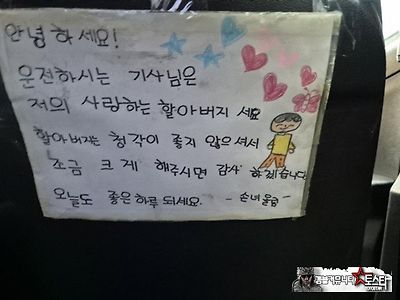 안녕하세요!
운전하시는 기사님은
저의 사랑하는 할아버지 세요
할아버지는 청각이 좋지 않으셔서
조금 크게 해주시면 감사 하겠습니다
오늘도 좋은하루 되세요. - 손녀올림 -